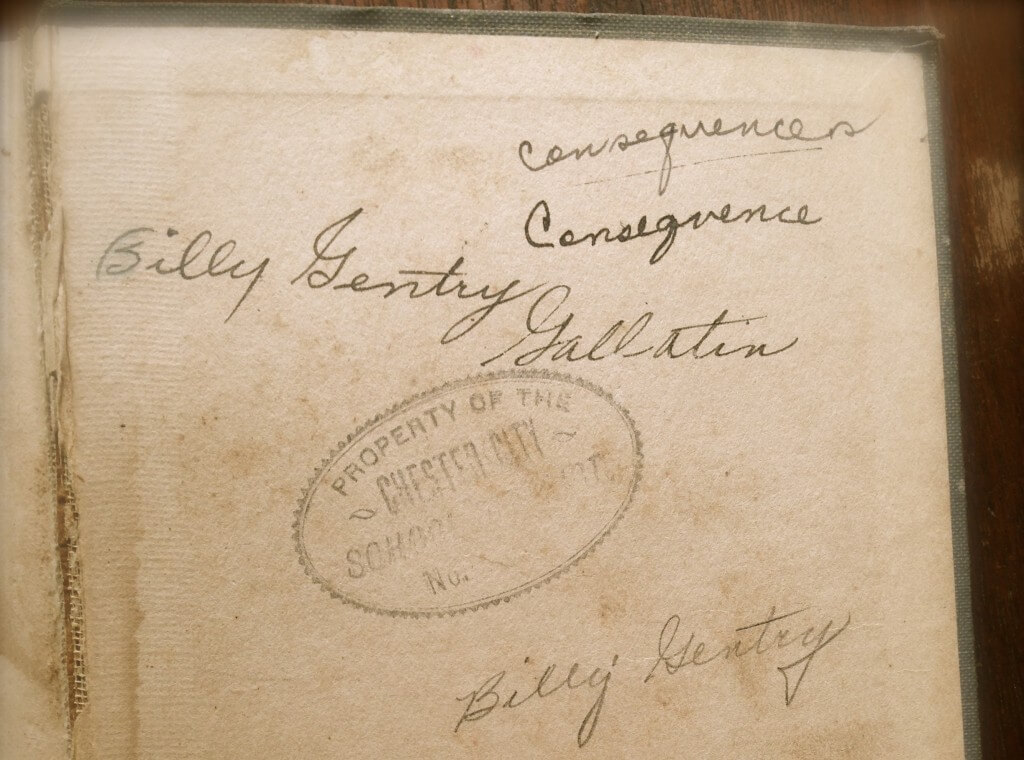 consequences
Consequence
Billy Gentry
Gallatin
PROPERTY OF THE
CHESTER CITY
SCHOOL DIST.
No.
Billy Gentry